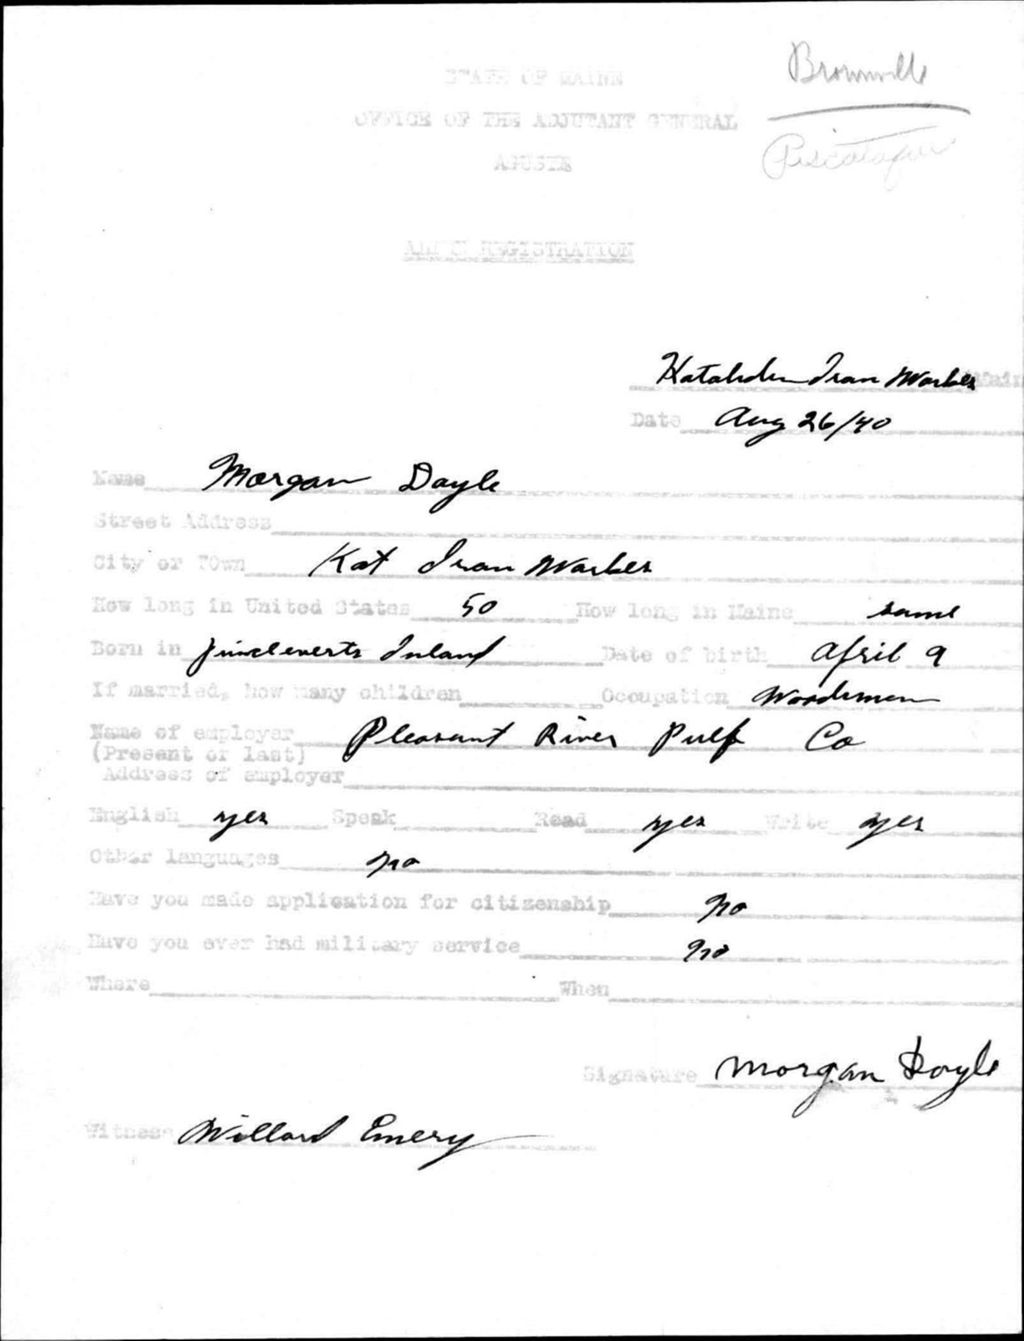 Brownville
STATE OF MAINE
OFFICE OF THE ADJUTANT GENERAL
AGUSTE
ALIEN REGISTRATION
Iron Works Maine
Date Aug 26/40
Name Morgan Doyle
Street Address
City or TOwn Kat Iron Works
How long in United States 50 How long in Maine same
Born in Date of birth April 9
If married, how many children Occupation Woodsman
Name of employer Pleasant River Pulp Co
(Present or last)
Address of employer
English yes Speak Read yes Write yes
Other languages no
Have you made application for citizenship no
Have you ever had military service no
Where When
Signature Morgan Doyle
Witness Willard Emery